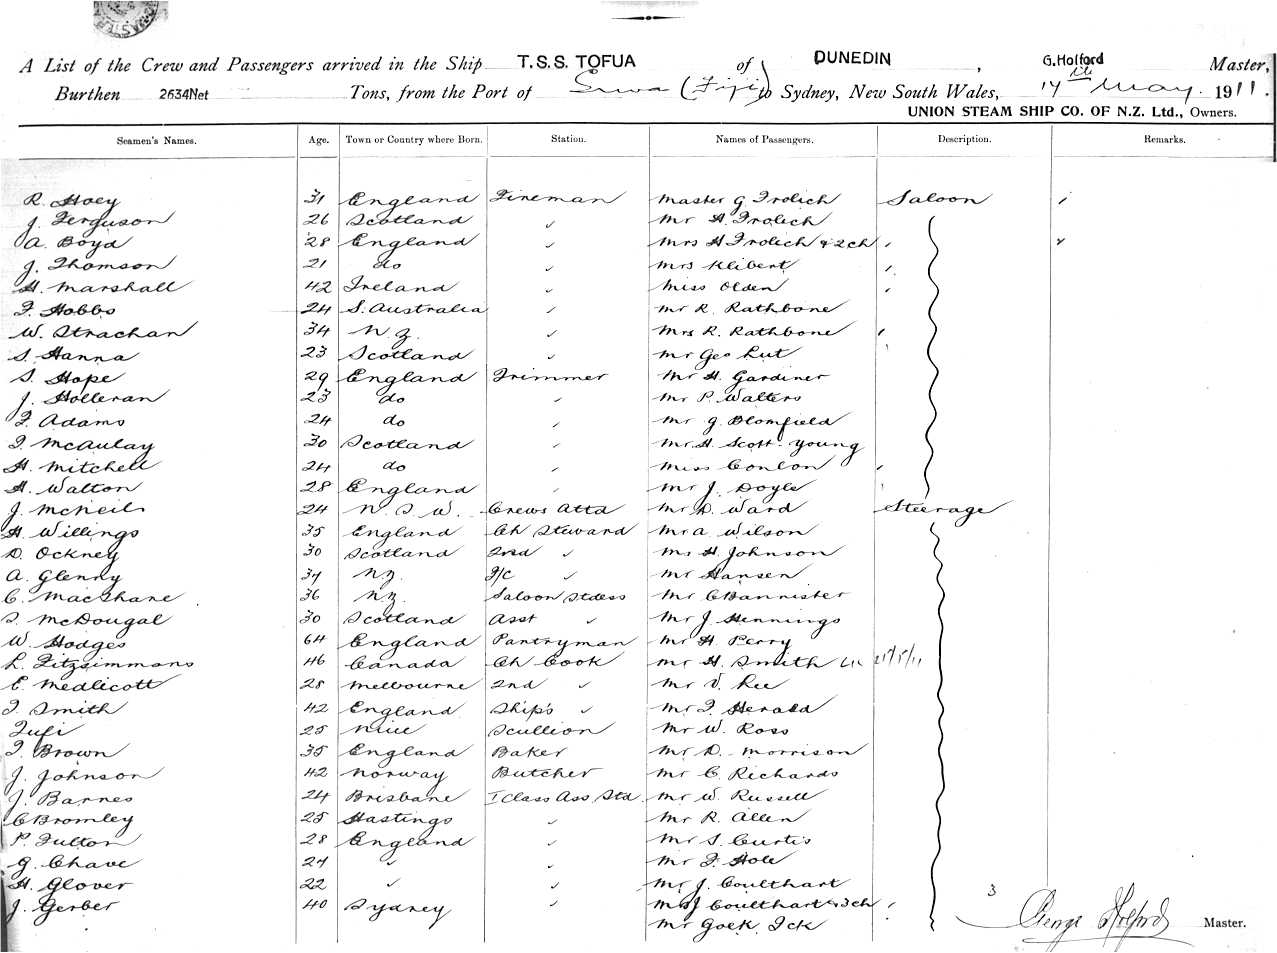 A List of the Crew and Passengers arrived in the Ship T.S.S. TOFUA of DUNEDIN, G. Holford Master,
Burthen 2634 Net Tons, from the Port of Suva (Fiji) to Sydney, New South Wales, 17th May. 1911.
UNION STEAM SHIP CO. OF N.Z. Ltd., Owners.
Seamen's Names. Age. Town or Country where Born. Station. Names of Passengers. Description. Remarks.
R. Hoey 31 England Fireman Master G Frolich Saloon
J. Ferguson 26 Scotland ✓ Mr H. Frolich
A. Boyd 28 England ✓ Mrs H Frolich & 2 ch
J. Thomson 21 do ✓ Mrs Klibert
H. Marshall 42 Ireland ✓ Miss Olden
F. Hobbs 24 S. Australia ✓ Mr R. Rathbone
W. Strachan 34 N.Z. ✓ Mrs R. Rathbone
S. Hanna 23 Scotland ✓ Mr Geo
S. Hope 29 England Trimmer Mr H. Gardiner
J. Holleran 23 do ✓ Mr P. Walters
F. Adams 24 do ✓ Mr G. Blomfield
T. McAulay 30 Scotland ✓ Mr H. Scott-Young
H. Mitchell 24 do ✓ Miss Conlon
H. Walton 28 England ✓ Mr J. Doyle
J. McNeil 24 N. S. W. Crews Attd Mr D. Ward Steerage
H. Willings 35 England Ch Steward Mr A. Wilson
D. Ockney 30 Scotland 2nd ✓ Mr H. Johnson
A. Glenny 34 NZ. F/C ✓ Mr Hansen
C. MacShane 36 NZ. Saloon Stdess Mr C Bannister
S. McDougal 30 Scotland Asst ✓ Mr J. Hennings
W. Hodges 64 England Pantryman Mr H. Perry
L. Fitzsimmons 46 Canada Ch Cook Mr H. Smith
E. Medlicott 28 Melbourne 2nd ✓ Mr V. Lee
T. Smith 42 England Ship's ✓ Mr T. Herald
Tufi 25 Niue Scullion Mr W. Ross
T. Brown 35 England Baker Mr D. Morrison
J. Johnson 42 Norway Butcher Mr C. Richards
J. Barnes 24 Brisbane 1 Class Ass Std. Mr W. Russell
C Bromley 25 Hastings ✓ Mr R. Allen
P. Fulton 28 England ✓ Mr S. Curtis
G. Chave 24 ✓ ✓ Mr F. Hole
H. Glover 22 ✓ ✓ Mr J. Coulthart
J. Gerber 40 Sydney ✓ Mrs J Coulthart & 3 ch 3
Mr Goek. Ick George Holford Master.